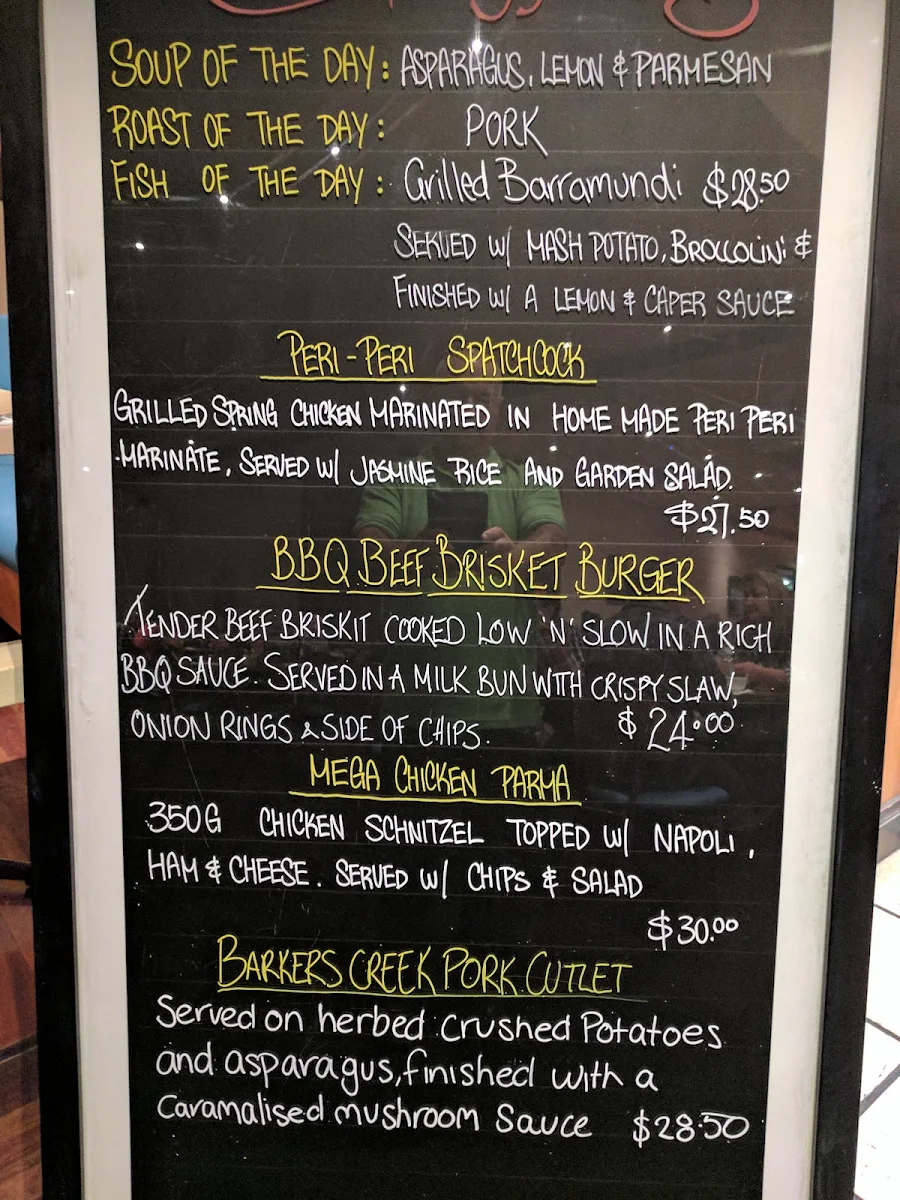 SOUP OF THE DAY: ASPARAGUS, LEMON & PARMESAN
ROAST OF THE DAY: PORK
FISH OF THE DAY: Grilled Barramundi $28.50
SERVED W/ MASH POTATO, BROCCOLINI &
FINISHED W/ A LEMON & CAPER SAUCE
PERI-PERI SPATCHCOCK
GRILLED SPRING CHICKEN MARINATED IN HOME MADE PERI PERI
MARINATE, SERVED W/ JASMINE RICE AND GARDEN SALAD.
$27.50
BBQ BEEF BRISKET BURGER
TENDER BEEF BRISKIT COOKED LOW 'N' SLOW IN A RICH
BBQ SAUCE. SERVED IN A MILK BUN WITH CRISPY SLAW,
ONION RINGS & SIDE OF CHIPS. $24.00
MEGA CHICKEN PARMA
350G CHICKEN SCHNITZEL TOPPED W/ NAPOLI,
HAM & CHEESE. SERVED W/ CHIPS & SALAD
$30.00
BARKERS CREEK PORK CUTLET
Served on herbed crushed Potatoes
and asparagus, finished with a
Caramalised mushroom Sauce $28.50